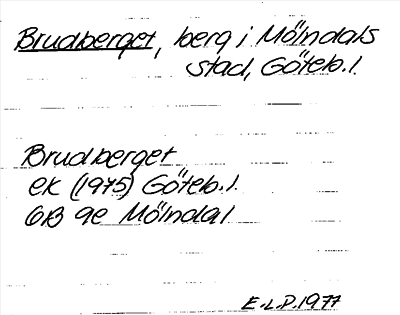 Brudberget, berg i Mölndals
stad, Göteb. l.
Brudberget
ek (1975) Göteb. l.
6B 9e Mölndal
E.L.P. 1977